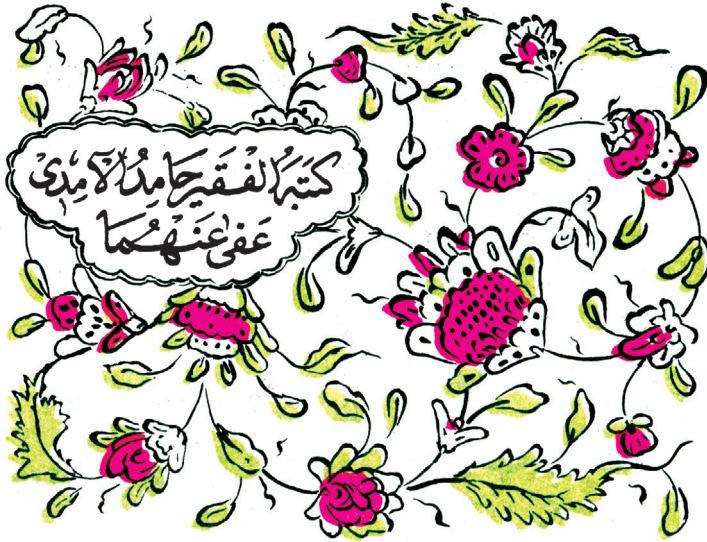 كَتَبَهُ الْفَقِيرُ حَامِدُ الْآمِدِى
عُفِىَ عَنْهُمَا